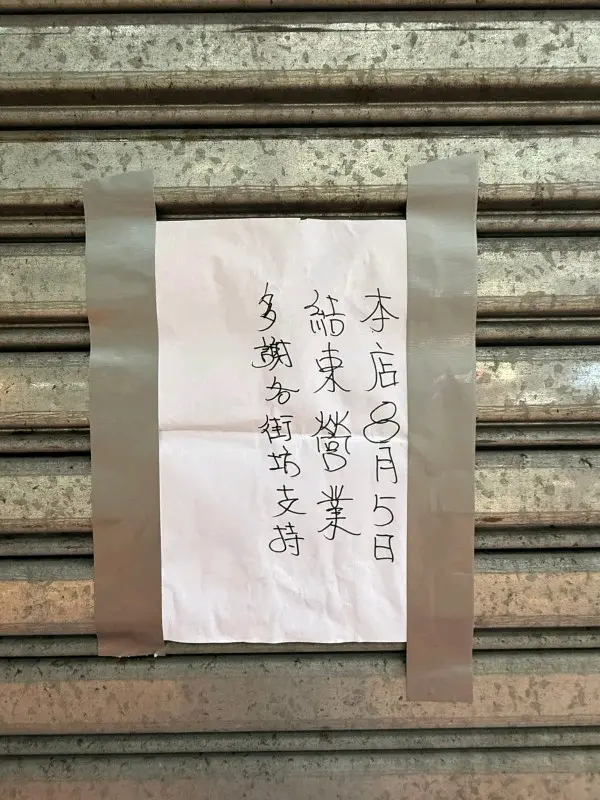 本店8月5日
結束營業
多謝各街坊支持